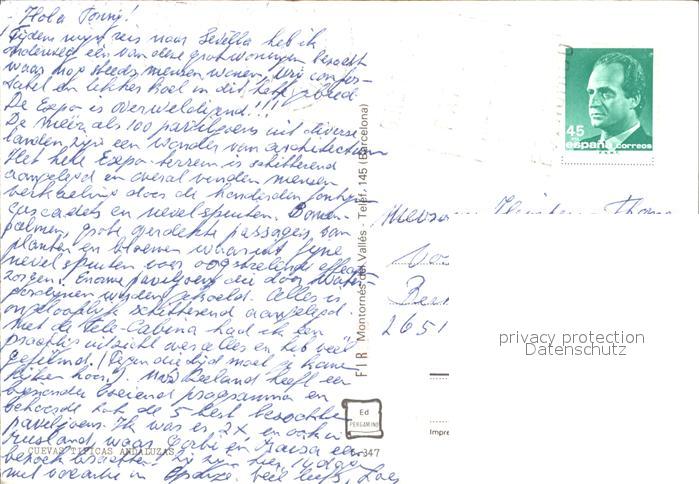 - Hola Tonny!
Tijdens mijn reis naar Sevilla heb ik
onderweg één van deze grotwoningen bezocht
waar nog steeds mensen wonen. Vrij comfor-
tabel en lekker koel in dit hete gebied.
De Expo is overweldigend!!!
De méér als 100 paviljoens uit diverse
landen zijn een wonder van architectuur
Het hele Expo-terrein is schitterend
aangelegd en overal vinden mensen
verkoeling door de honderden fonteinen
cascades en nevelspuiten. Bomen-
palmen, grote overdekte passages van
planten en bloemen waaruit fijne
nevel spuiten voor oogstrelende effecten
zorgen. Enorme paviljoens die door water
gordijnen worden gekoeld. Alles is
ongelooflijk schitterend aangelegd.
Met de Tele-Cabina had ik een
prachtig uitzicht over alles en heb veel
gefilmd. (Tegen die tijd moet je komen
kijken hoor!). Nederland heeft een
bijzonder boeiend programma en
behoorde tot de 5 best bezochte
paviljoens. Ik was er 2x en ook in
Friesland, waar en een
bezoek brachten. Zij zijn hier 14 dagen
met vacantie in veel liefs, Loes
CUEVAS TIPICAS ANDALUZAS
347
FIR Montornés del Vallés - Teléf, 145 (Barcelona)
Ed
PERGAMINO
45
españa correos
Mevrouw
2651
Impre
privacy protection
Datenschutz